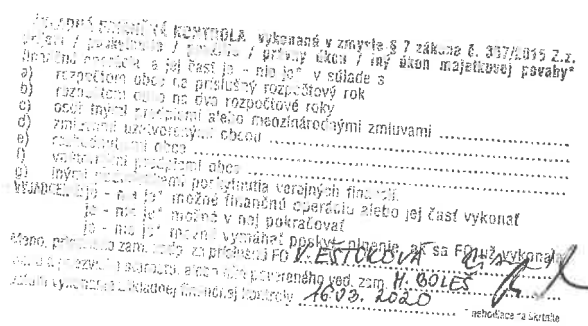 ZÁKLADNÁ FINANČNÁ KONTROLA vykonaná v zmysle § 7 zákona č. 357/2015 Z.z.
príjem / poskytnutie / použitie / právny úkon / iný úkon majetkovej povahy*
finančná operácia a jej časť je - nie je* v súlade s
a) rozpočtom obce na príslušný rozpočtový rok
b) rozpočtom obce na dva rozpočtové roky
c) osobitnými predpismi alebo medzinárodnými zmluvami
d) zmluvami uzatvorenými obcou
e) rozhodnutiami obce
f) vnútornými predpismi obce
g) inými podmienkami poskytnutia verejných financií.
VYJADRENIE: je - nie je* možné finančnú operáciu alebo jej časť vykonať
je - nie je* možné v nej pokračovať
je - nie je* možné vymáhať poskyt. plnenie, ak sa FO už vykonala
Meno, priezvisko zam. zodp. za príslušnú FO V. EŠTOKOVÁ
alebo ním povereného ved. zam. M. BOLEŠ
Dátum vykonania základnej finančnej kontroly 16.03.2020
* nehodiace sa škrtnite